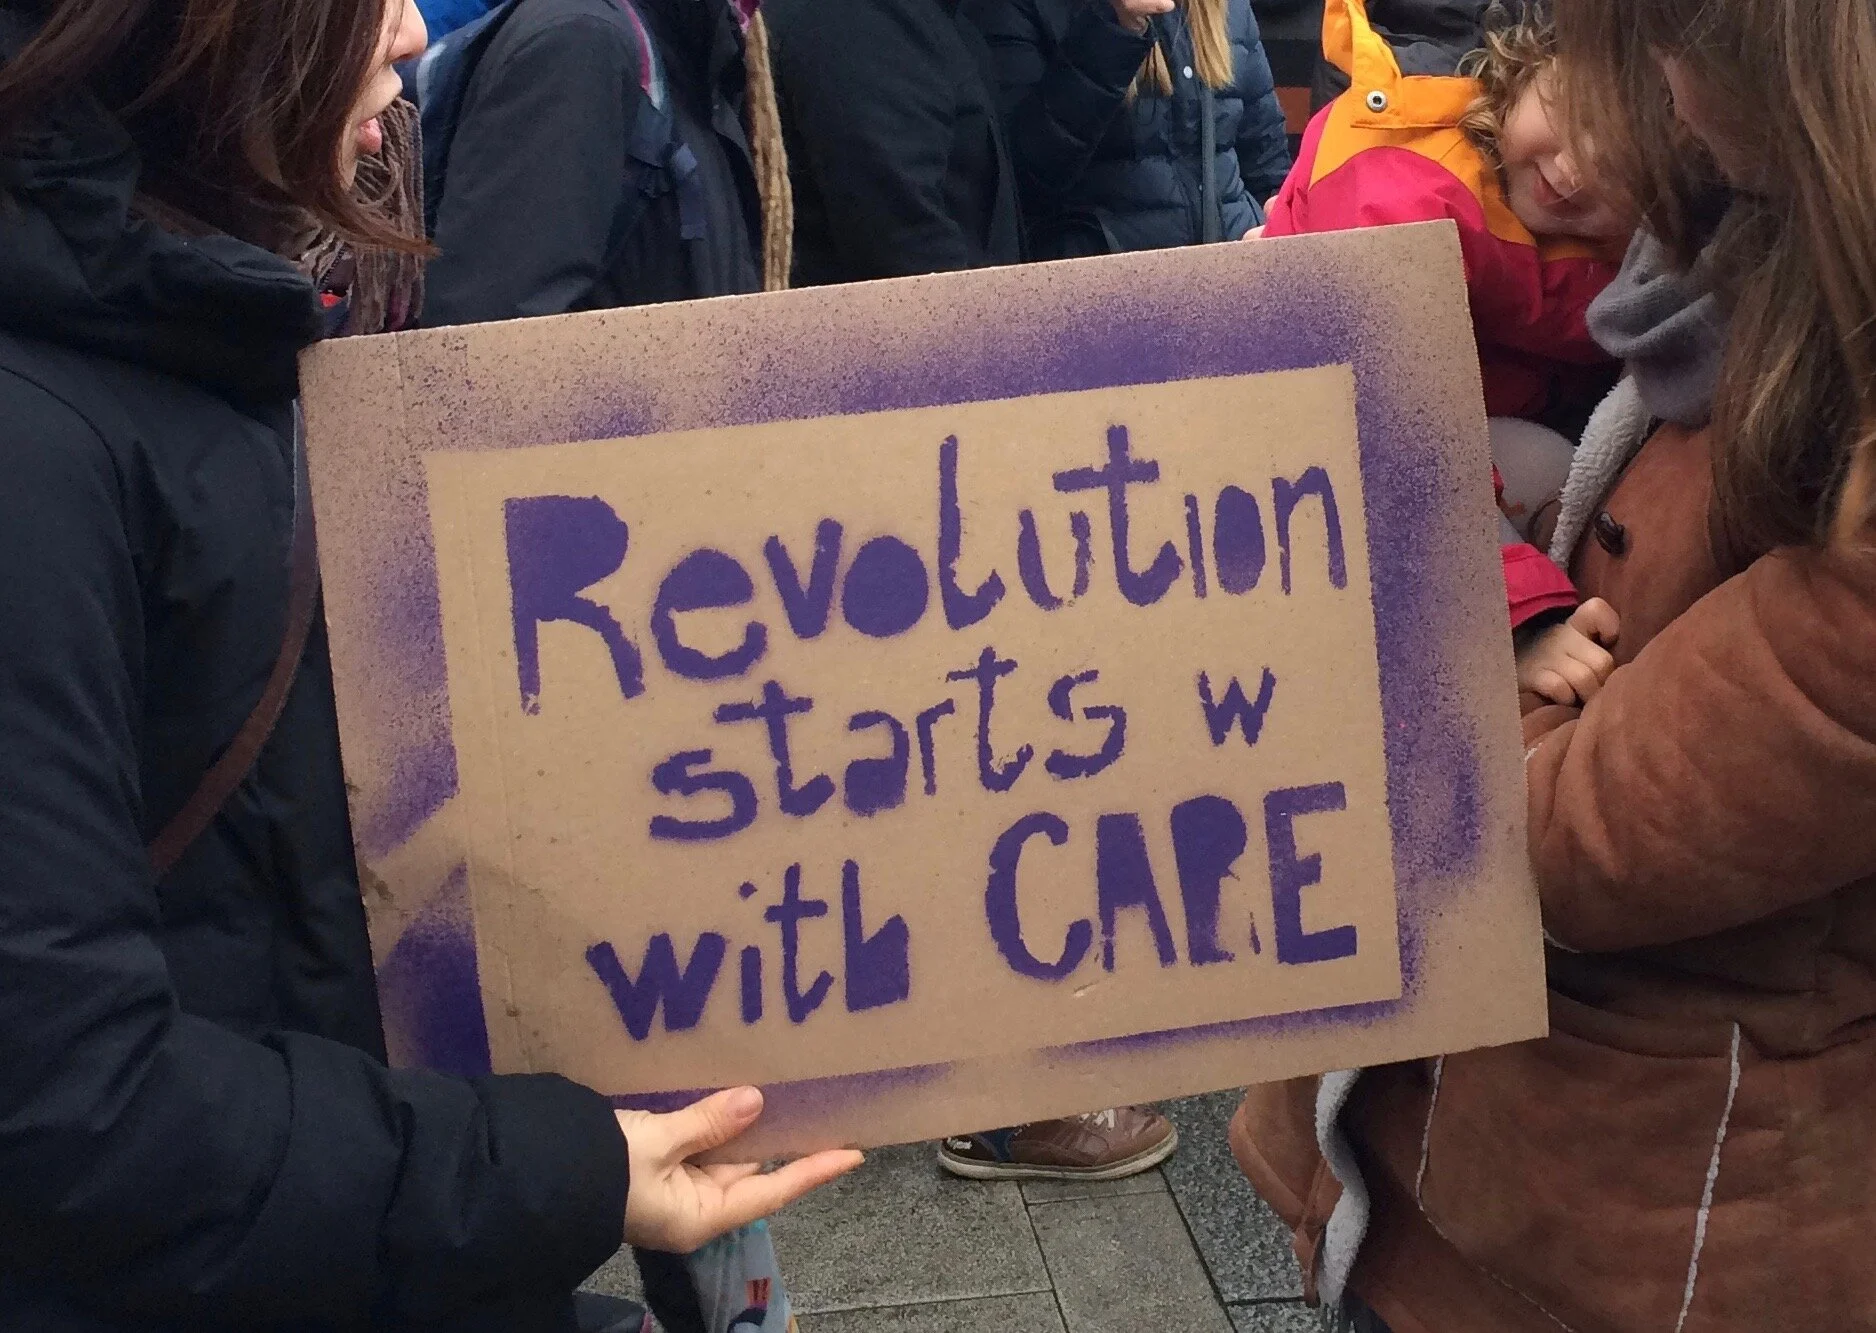 Revolution
starts w
with CARE